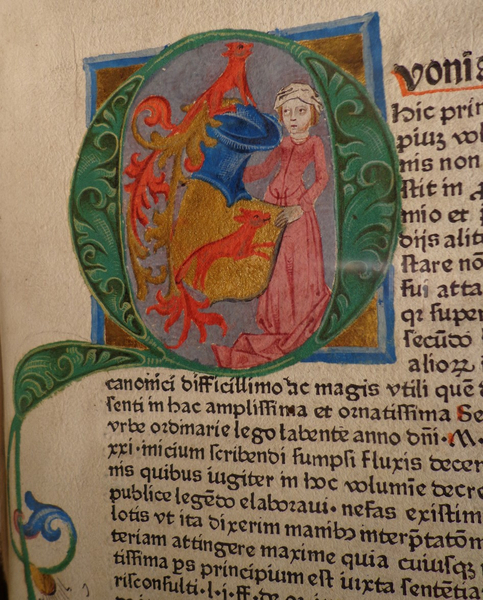 voniā
hic prin
piuz vol
nis non
stit in
mio et p
dijs alit
stare nō
fui atta
qr super
secūdo
aliorꝝ
canonici difficillimo ac magis vtili quē
senti in hac amplissima et ornatissima Se
vrbe ordinarie lego labente anno dn̄i · M ·
xxi · inicium scribendi sumpsi Fluxis decen
nis quibus iugiter in hoc volumīe decre
publice legēdo elaboraui · nefas existim
lotis vt ita dixerim manibꝰ interp̄tatōm
teriam attingere maxime quia cuiusqꝫ
tissima ps principium est iuxta sentētia
risconsulti · l · j · ff · de